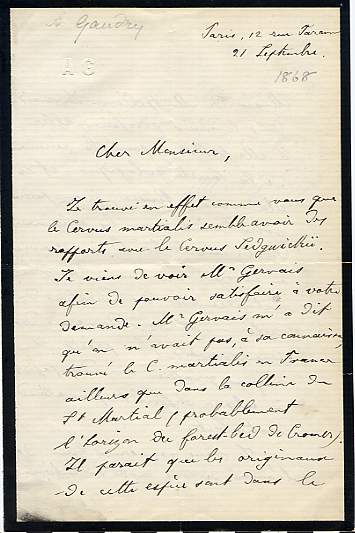 A Gaudry
Paris, 12 rue Taranne
21 Septembre.
1868
A G
Cher Monsieur,
Je trouve en effet comme vous que
le Cervus martialis semble avoir des
rapports avec le Cervus Sedgwickii.
Je viens de voir Mr Gervais
afin de pouvoir satisfaire à votre
demande. Mr Gervais m'a dit
qu'on n'avait pas, à sa connaissance
trouvé le C. martialis en France
ailleurs que dans la colline de
St Martial (probablement
l'horizon du forest-bed de Cromer).
Il parait que les originaux
de cette espèce sont dans la